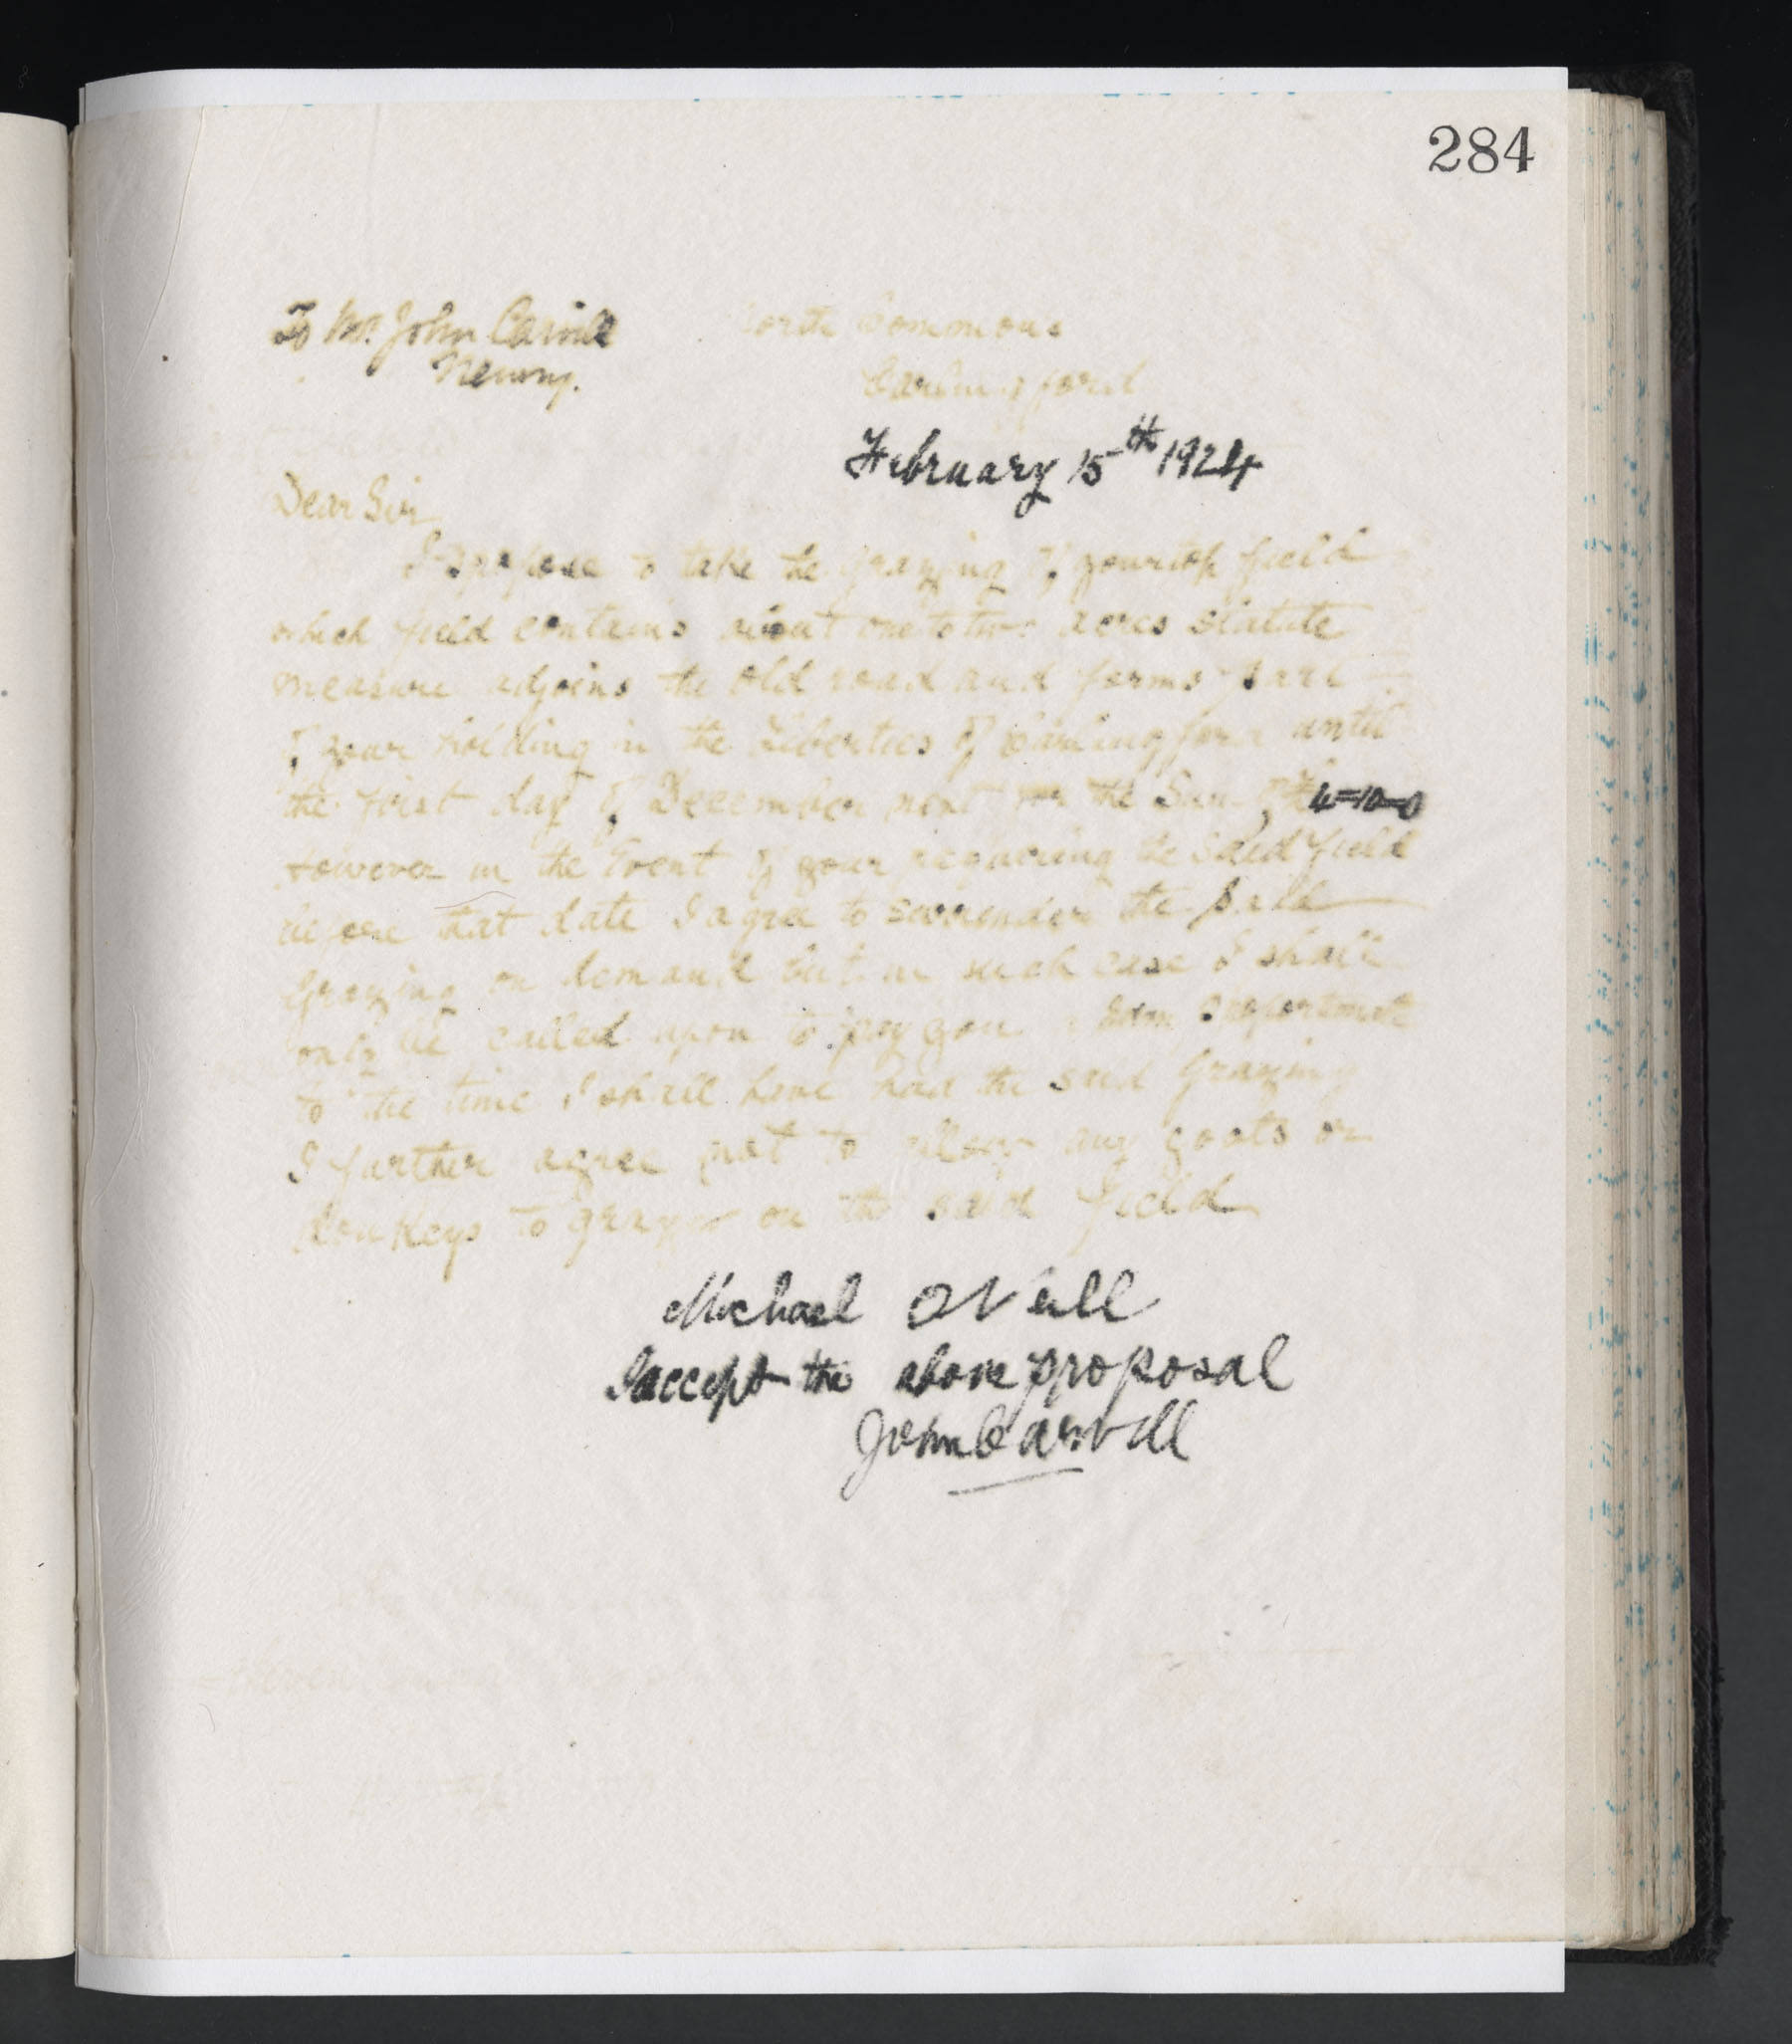 284
To Mr. John Carvill
Newry.
North Commons
Carlingford
February 15th 1924
Dear Sir,
I propose to take the grazing of your top field
which field contains about one to two acres statute
measure adjoins the old road and forms part
of your holding in the Liberties of Carlingford until
the first day of December next for the Sum of £4-10-0
However in the Event of your requiring the said field
before that date I agree to surrender the said
Grazing on demand but in such case I shall
only be called upon to pay you a sum proportionate
to the time I shall have had the said Grazing
I further agree not to allow any goats or
donkeys to graze on the said field
Michael ONeill
I accept the above proposal
John Carvill